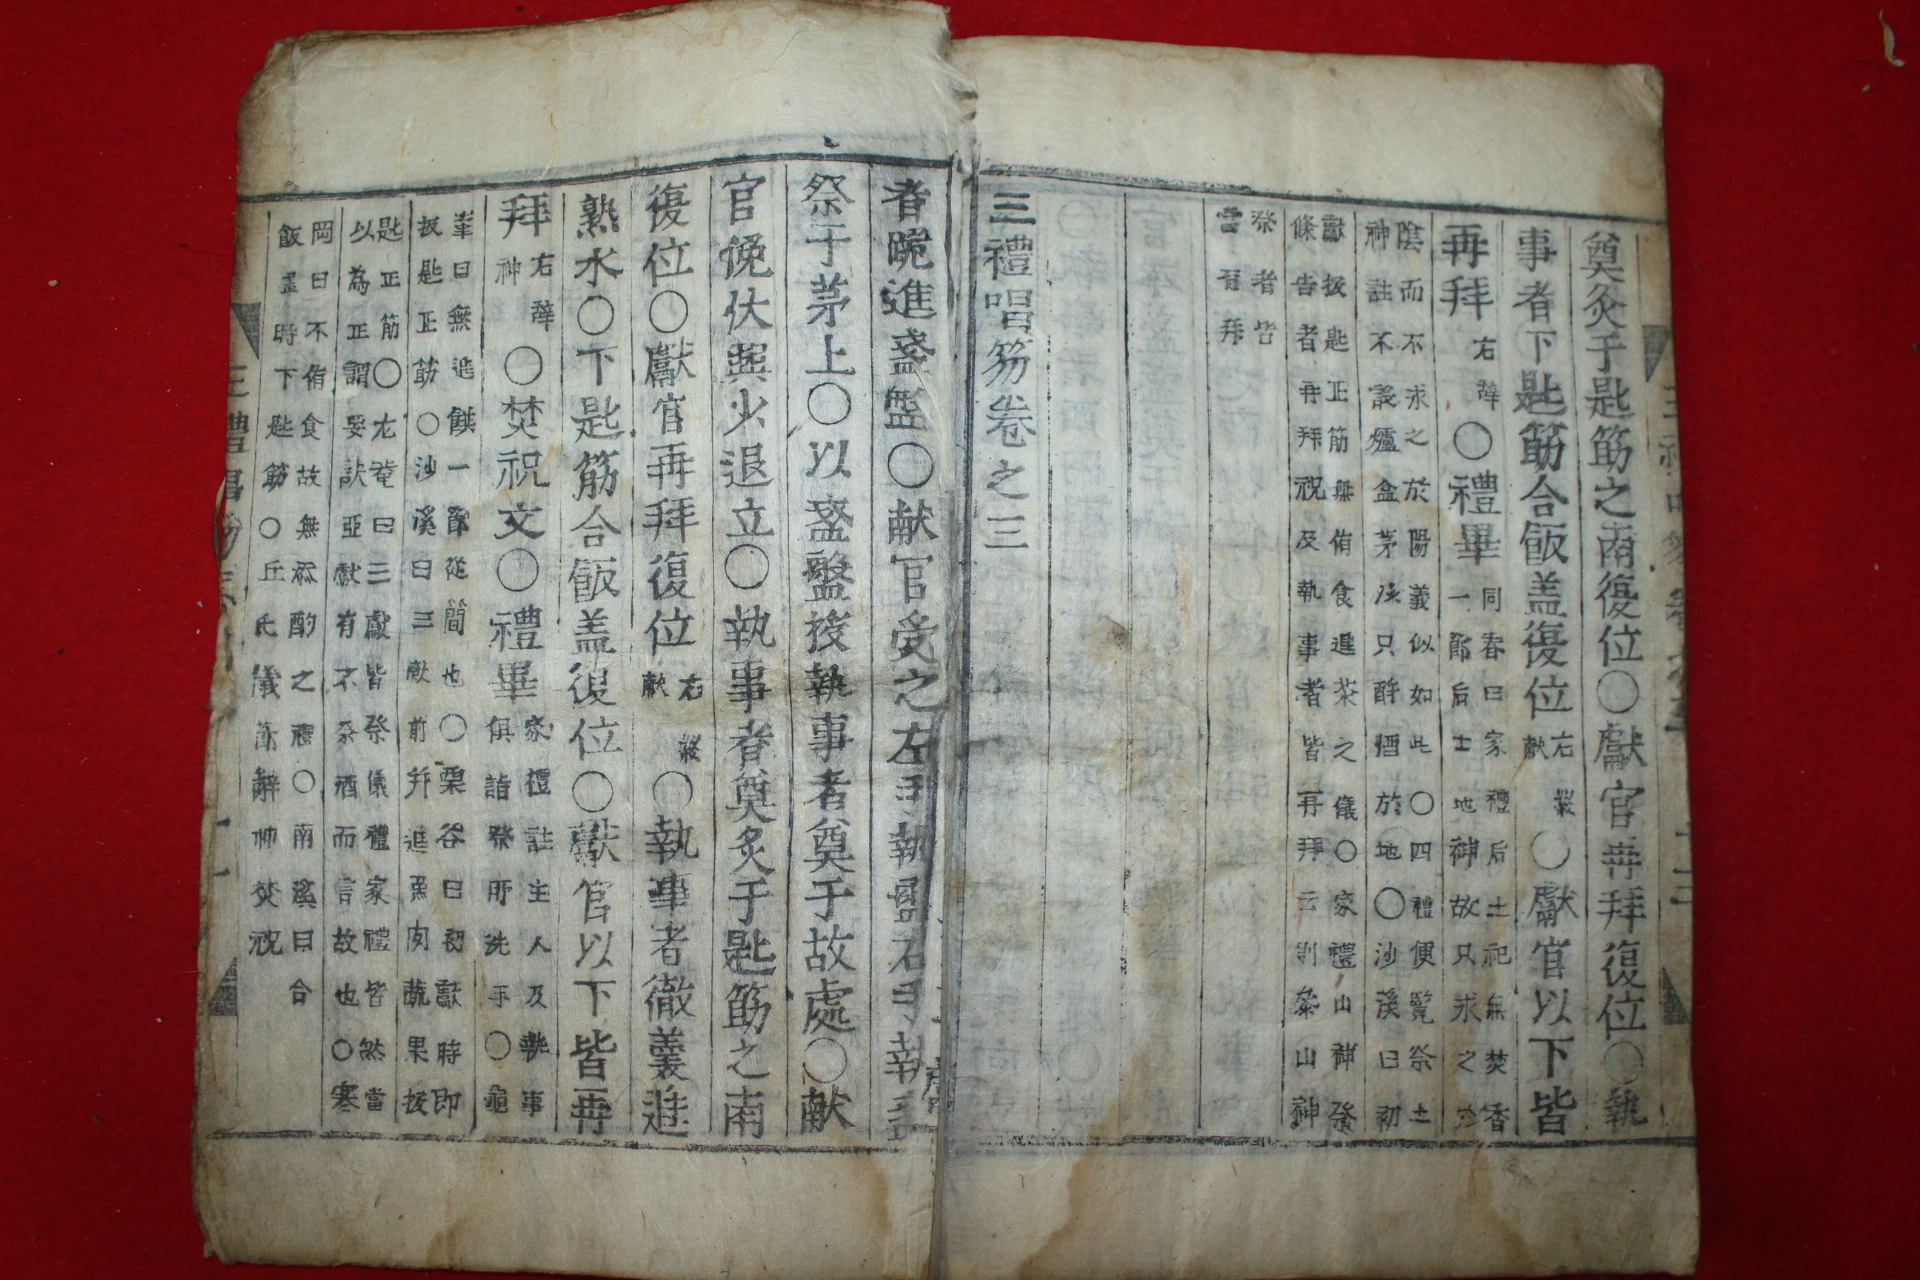 奠炙于匙筯之南復位○獻官再拜復位○執
事者下匙筯合飯盖復位右獻○獻官以下皆
再拜右辭○禮畢同春曰家禮后土祀無焚香
一節后土地神故只求之於
陰而不求之於陽義似如此○四禮便覽祭土
神註不設爐盒茅沙只酹酒於地○沙溪曰初
獻扱匙正筯無侑食進茶之儀○家禮山神祭
條告者再拜祝及執事者皆再拜云則祭山神
祭者皆
當有拜
三禮唱笏卷之三
者跪進盞盤○献官受之左手執盤右手執盞
祭于茅上○以盞盤授執事者奠于故處○献
官俛伏興少退立○執事者奠炙于匙筯之南
復位○獻官再拜復位右獻○執事者徹羹進
熟水○下匙筯合飯盖復位○獻官以下皆再
拜右辭神○焚祝文○禮畢家禮註主人及執事
俱詣祭所洗手○龜
峯曰無進饌一節從簡也○栗谷曰初獻時即
扱匙正筯○沙溪曰三獻前并進魚肉蔬果扱
匙正筯○尤菴曰三獻皆祭儀禮家禮皆然當
以為正謂妥訣亞獻有不祭酒而言故也○寒
岡曰不侑食故無添酌之禮○南溪曰合
飯盖時下匙筯○丘氏儀節辭神焚祝